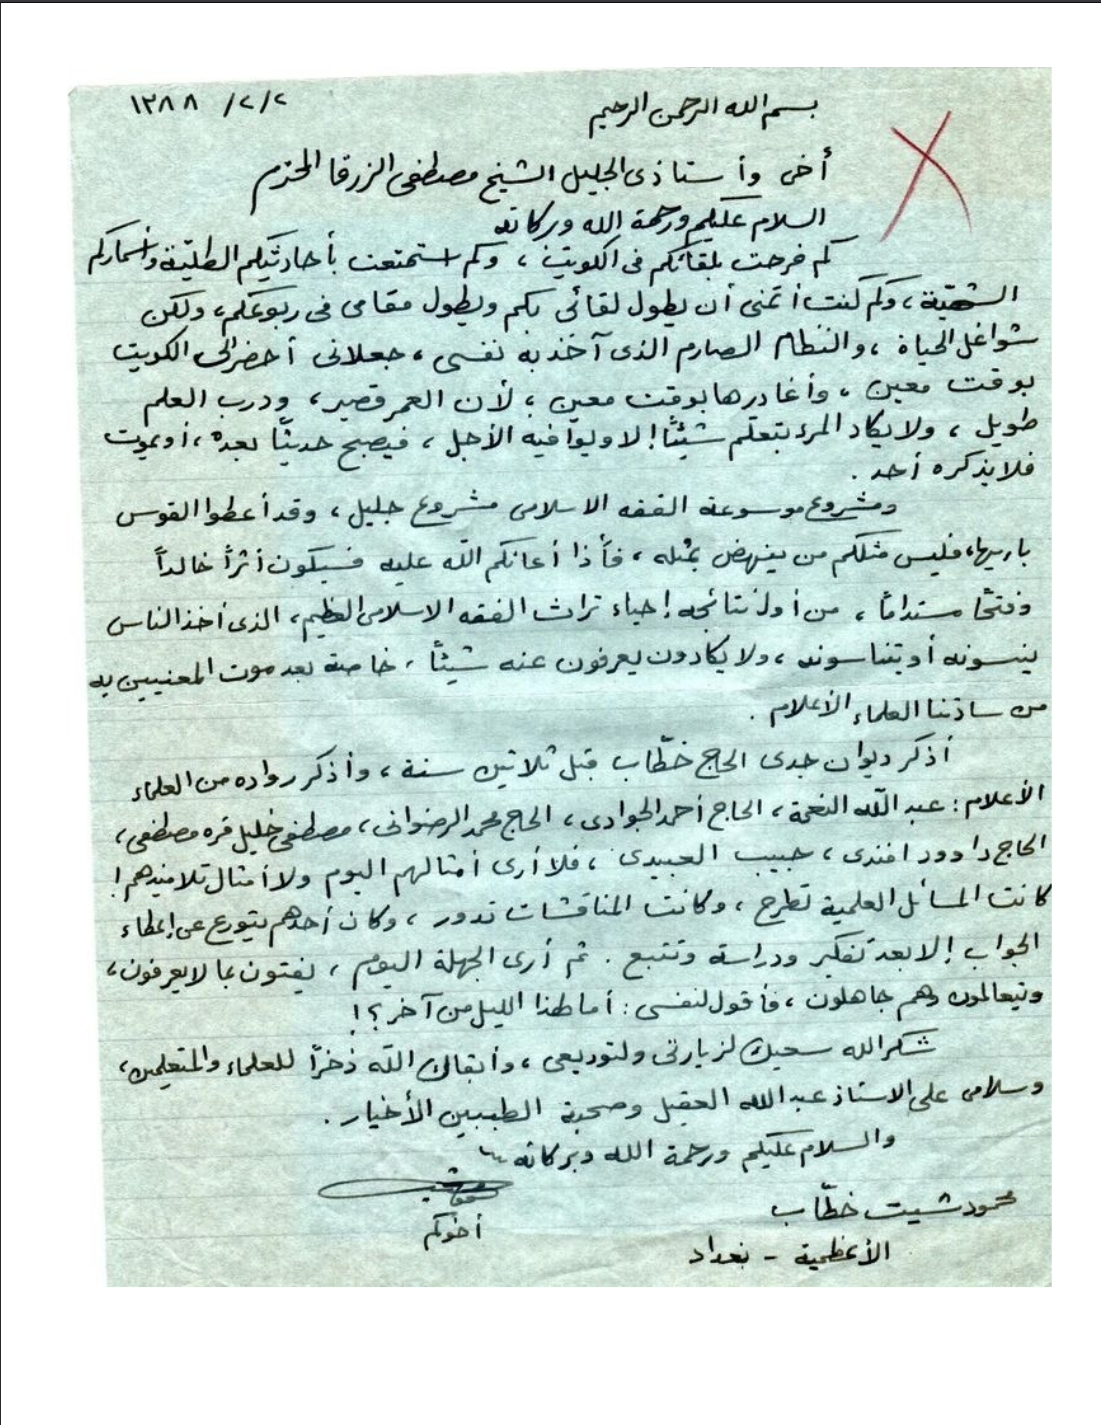 ١٣٨٨ /٢/٢
بسم الله الرحمن الرحيم
أخي وأستاذي الجليل الشيخ مصطفى الزرقا المحترم
السلام عليكم ورحمة الله وبركاته
كم فرحت بلقائكم فى الكويت ، وكم استمتعت بأحاديثكم الطليّة وأسماركم
الشهيّة ، وكم كنت أتمنى أن يطول لقائي بكم ويطول مقامي في ربوعكم ، ولكن
شواغل الحياة ، والنظام الصارم الذى آخذ به نفسي ، جعلاني أحضر الى الكويت
بوقت معين ، وأغادرها بوقت معين ، لأن العمر قصير ، ودرب العلم
طويل ، ولا يكاد المرء يتعلّم شيئًا إلا ويوافيه الأجل ، فيصبح حديثًا بعده ، أو يموت
فلا يذكره أحد .
ومشروع موسوعة الفقه الاسلامي مشروع جليل ، وقد أعطوا القوس
باريها ، فليس مثلكم من ينهض بمثله ، فأذا أعانكم الله عليه فسيكون أثرًا خالداً
وفتحًا مستدامًا ، من أول نتائجه إحياء تراث الفقه الاسلامى العظيم ، الذى أخذ الناس
ينسونه أو يتناسونه ، ولا يكادون يعرفون عنه شيئًا ، خاصة بعد موت المعنيين به
من سادتنا العلماء الأعلام .
أذكر ديوان جدى الحاج خطّاب قبل ثلاثين سنة ، وأذكر رواده من العلماء
الأعلام : عبد الله النعمة ، الحاج أحمد الجوادى ، الحاج محمد الرضوانى ، مصطفى خليل قره مصطفى ،
الحاج داوود افندى ، حبيب العبيدى ، فلا أرى أمثالهم اليوم ولا أمثال تلاميذهم !
كانت المسائل العلمية تطرح ، وكانت المناقشات تدور ، وكان أحدهم يتورع عن إعطاء
الجواب إلا بعد تفكير ودراسة وتتبع . ثم أرى الجهلة اليوم ، يفتون بما لا يعرفون ،
ويتعالمون وهم جاهلون ، فأقول لنفسى : أما لهذا الليل من آخر ؟ !
شكر الله سعيك لزيارتي ولتوديعي ، وأبقاك الله ذخرًا للعلماء والمتعلمين ،
وسلامى على الاستاذ عبد الله العقيل وصحبة الطيبين الأخيار .
والسلام عليكم ورحمة الله وبركاته
أخوكم
محمود شيت خطّاب
الأعظمية - بغداد